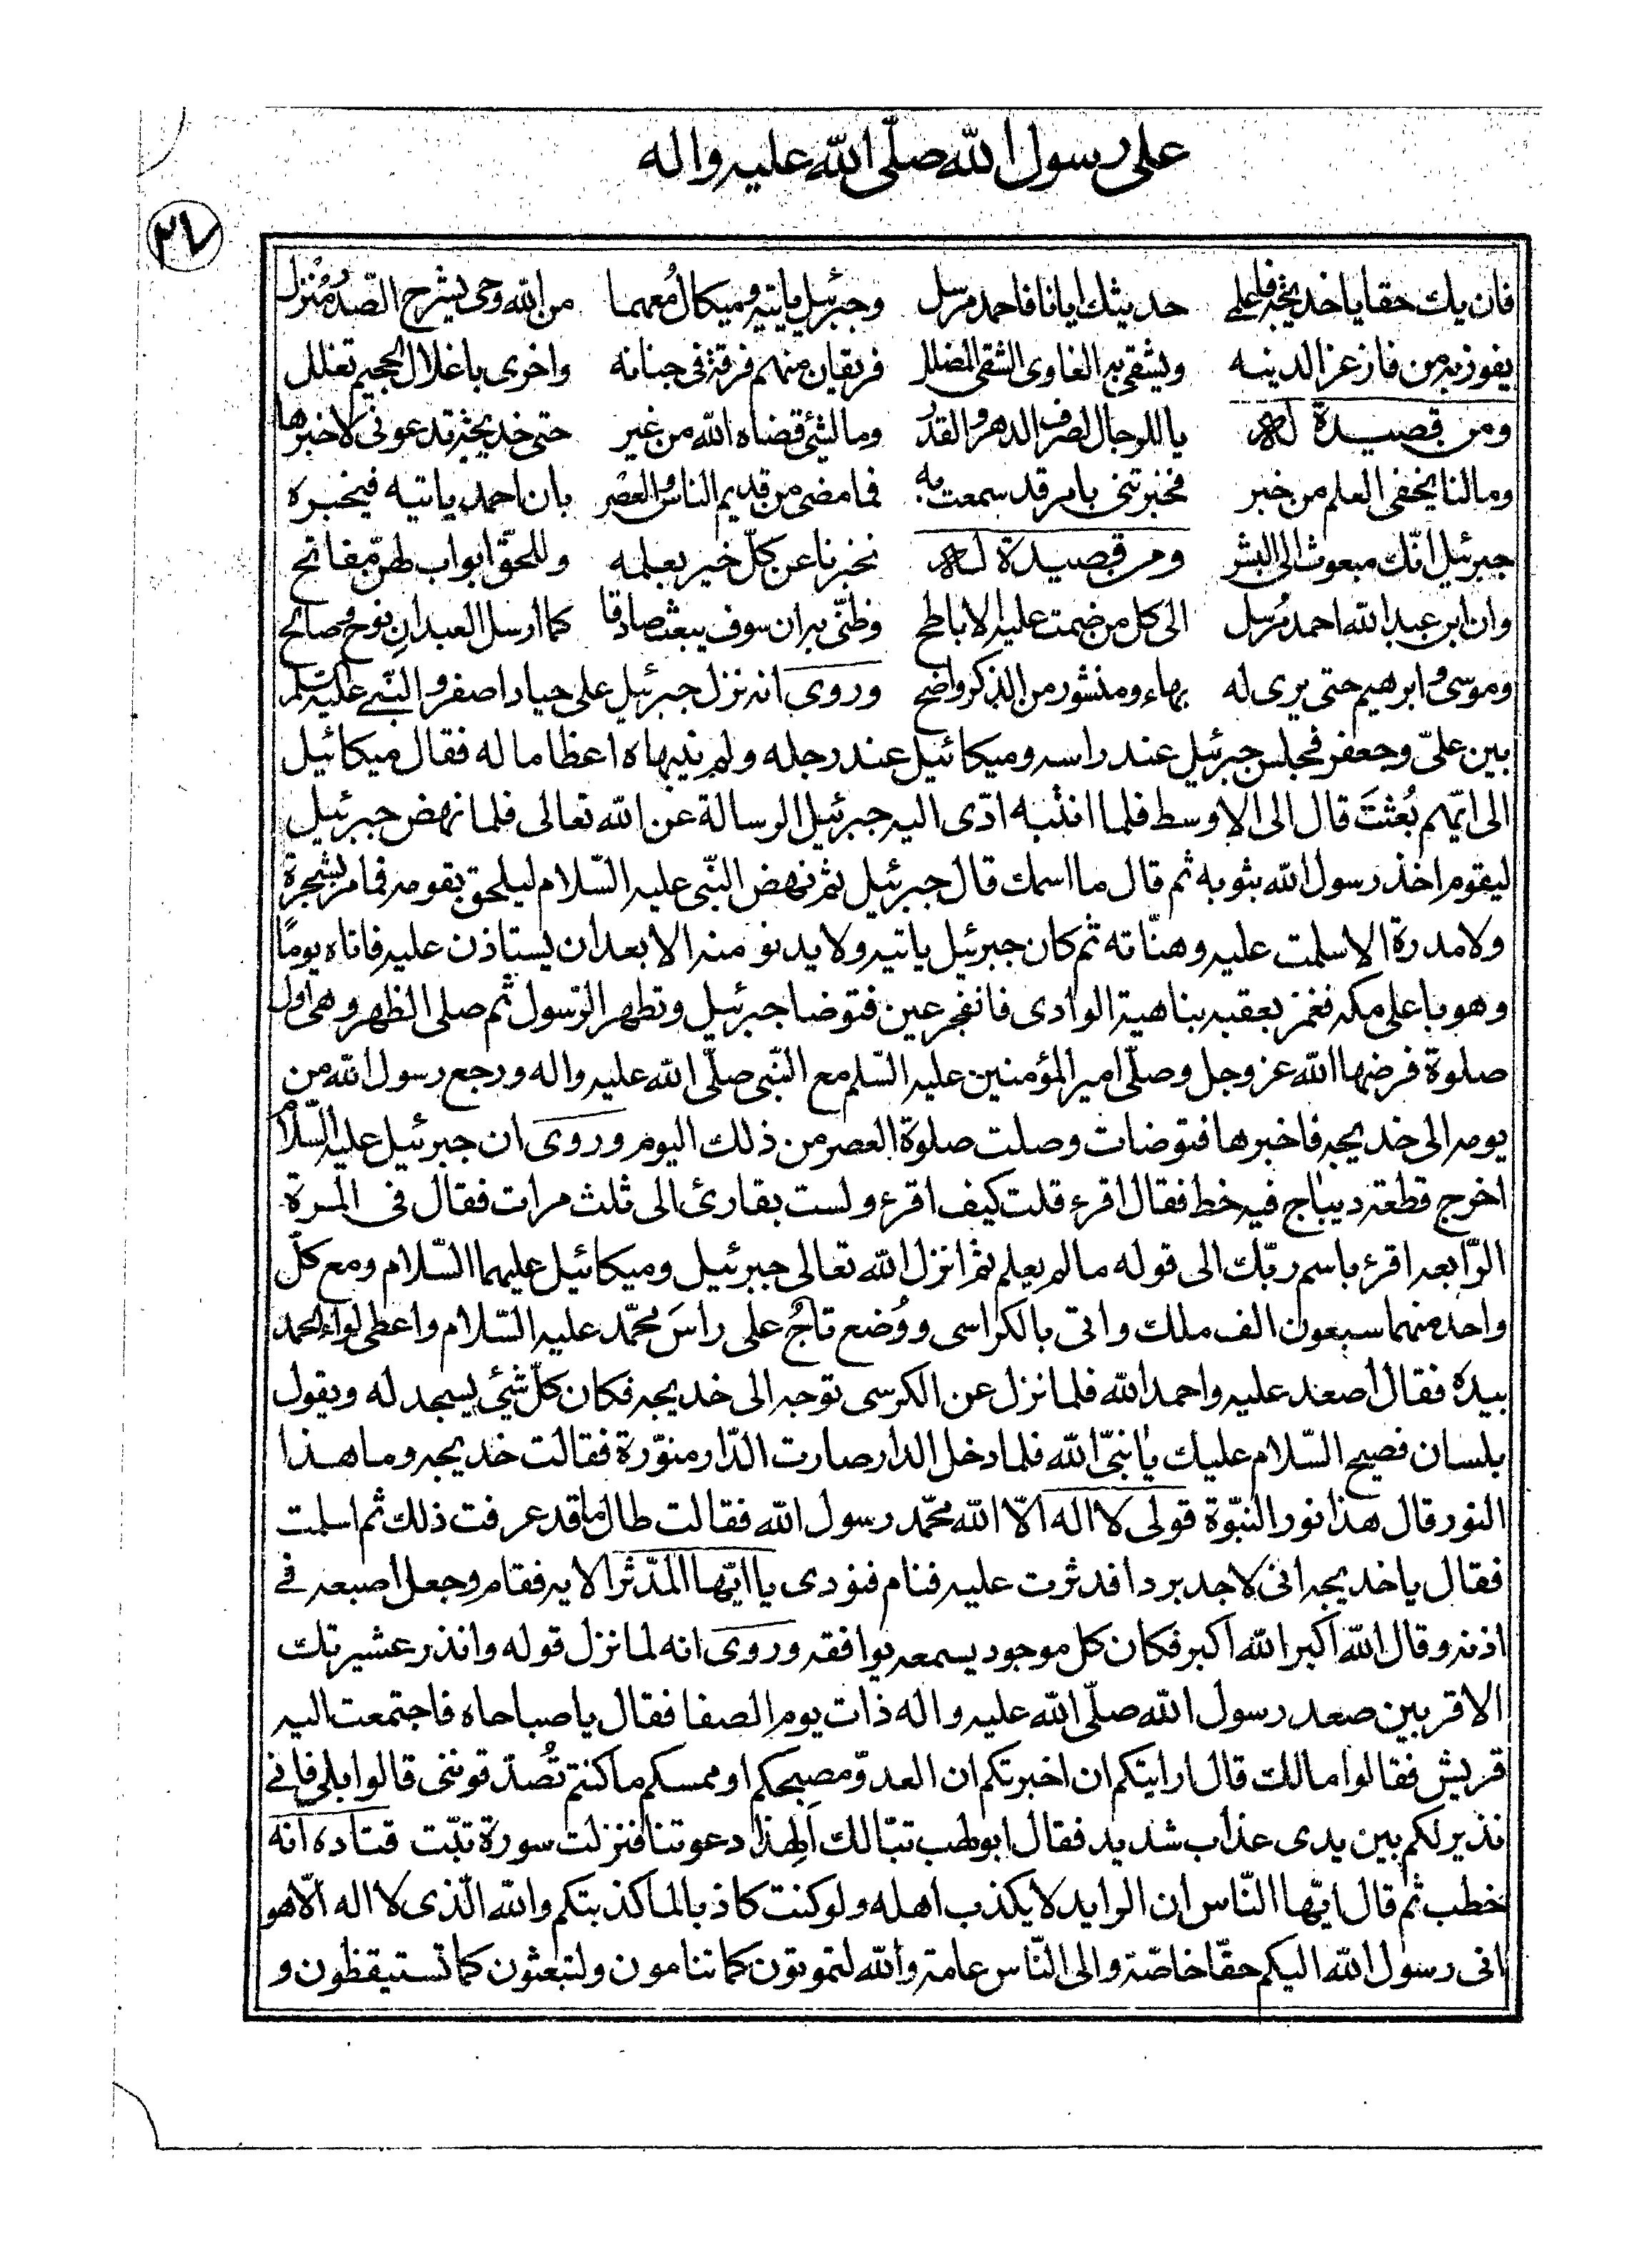 على رسول الله صلّى الله عليه واله
فان يك حقا يا خديجة فاعلمي حديثك ايانا فاحمد مرسل وجبرئيل ياتيه وميكال مُعهما من الله وحى يشرح الصّدر مُنزل
يفوز به من فاز عز الدينه ويشقى به الغاوى الشقى المضلل فريقان منهم فرقة فى جنانه واخرى باغلال الجحيم تغلل
ومن قصيدة له يا للرجال لصرف الدهر والقدرُ وما لشئ قضاه الله من غير حتى خديجة تدعونى لاخبرها
وما لنا يخفى العلم من خبر فخبرتنى بامر قد سمعت به فما مضى من قديم الناس والعصر بان احمد ياتيه فيخبره
جبرئيل انّك مبعوث الى البشر ومن قصيدة له نخبرنا عن كلّ خير بعلمه وللحقّ ابواب لهنّ مفاتح
وان ابن عبد الله احمد مُرسل الى كل من ضمت عليه الاباطح وظنّى به ان سوف يبعث صادقا كما ارسل العبدان نوح وصالح
وموسى وابرهيم حتى يرى له بهاء ومنشور من الذكر واضح وروى انه نزل جبرئيل على جياد اصفر والنّبى عليه السّلم
بين علىّ وجعفر فجلس جبرئيل عند راسه وميكائيل عند رجله ولم ينبهاه اعظاما له فقال ميكائيل
الى ايّهم بُعثتَ قال الى الاوسط فلما انتبه ادّى اليه جبرئيل الرسالة عن الله تعالى فلما نهض جبرئيل
ليقوم اخذ رسول الله بثوبه ثم قال ما اسمك قال جبرئيل ثم نهض النّبى عليه السّلام ليلحق بقومه فما مر بشجرة
ولا مدرة الا سلمت عليه وهنّاته ثم كان جبرئيل ياتيه ولا يدنو منه الا بعد ان يستاذن عليه فاتاه يومًا
وهو باعلى مكه فغمز بعقبه بناهية الوادى فانفجر عين فتوضا جبرئيل وتطهر الرّسول ثم صلى الظهر وهى اول
صلوة فرضها الله عز وجل وصلّى امير المؤمنين عليه السّلم مع النّبى صلّى الله عليه واله ورجع رسول الله من
يومه الى خديجه فاخبرها فتوضات وصلت صلوة العصر من ذلك اليوم وروى ان جبرئيل عليه السّلام
اخرج قطعة ديباج فيه خط فقال اقرء قلت كيف اقرء ولست بقارئ الى ثلث مرات فقال فى المرة
الرّابعه اقرء باسم ربّك الى قوله ما لم يعلم ثم انزل الله تعالى جبرئيل وميكائيل عليهما السّلام ومع كلّ
واحد منهما سبعون الف ملك واتى بالكراسى ووُضع تاجٌ على راسَ محمّد عليه السّلام واعطى لواء الحمد
بيده فقال اصعد عليه واحمد الله فلما نزل عن الكرسى توجه الى خديجه فكان كلّ شئ يسجد له ويقول
بلسان فصيح السّلام عليك يا نبىّ الله فلما دخل الدار صارت الدّار منوّرة فقالت خديجه وما هذا
النور قال هذا نور النبّوة قولى لا اله الّا الله محمّد رسول الله فقالت طال ما قد عرفت ذلك ثم اسلمت
فقال يا خديجه انى لاجد بردا فدثرت عليه فنام فنودى يا ايّها المدّثر الايه فقام وجعل اصبعه فى
اذنه وقال الله اكبر الله اكبر فكان كل موجود يسمعه يوافقه وروى انه لما نزل قوله وانذر عشيرتك
الاقربين صعد رسول الله صلّى الله عليه واله ذات يوم الصفا فقال يا صباحاه فاجتمعت اليه
قريش فقالوا مالك قال ارايتكم ان اخبرتكم ان العدوّ مصبحكم او ممسكم ما كنتم تُصدّقوننى قالوا بلى فانى
نذير لكم بين يدى عذاب شديد فقال ابو لهب تبّا لك الهذا دعوتنا فنزلت سورة تبّت قتاده انه
خطب ثم قال ايّها النّاس ان الرايد لا يكذب اهله ولو كنت كاذبا لما كذبتكم والله الّذى لا اله الّا هو
انى رسول الله اليكم حقّا خاصّة والى النّاس عامة والله لتموتون كما تنامون ولتبعثون كما تستيقظون و